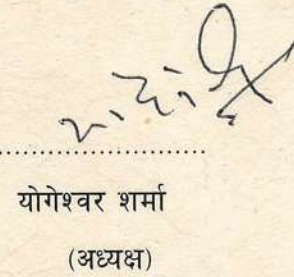 ........................................
योगेश्वर शर्मा
(अध्यक्ष)